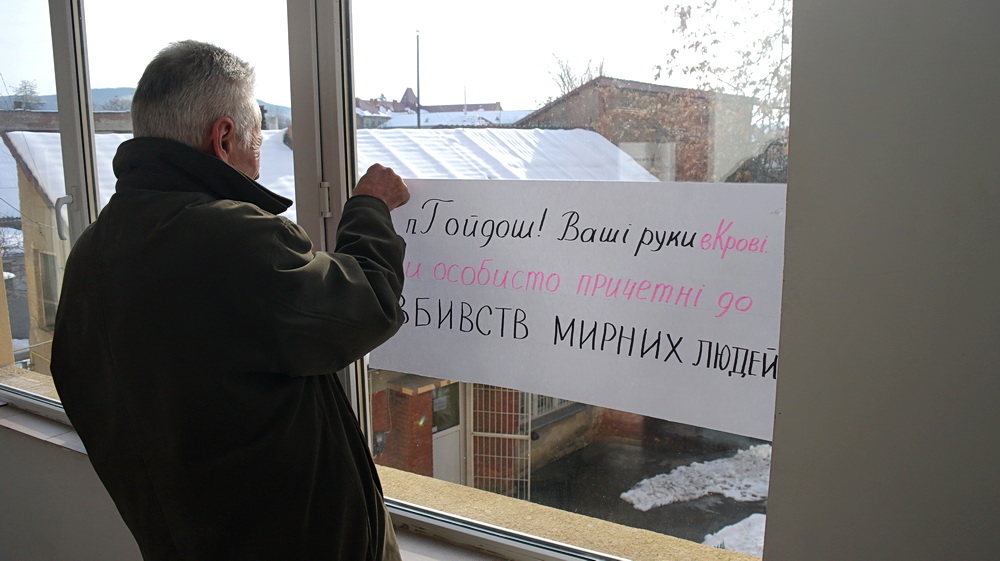 п Гойдош! Ваші руки в Крові.
и особисто причетні до
ВБИВСТВ МИРНИХ ЛЮДЕЙ